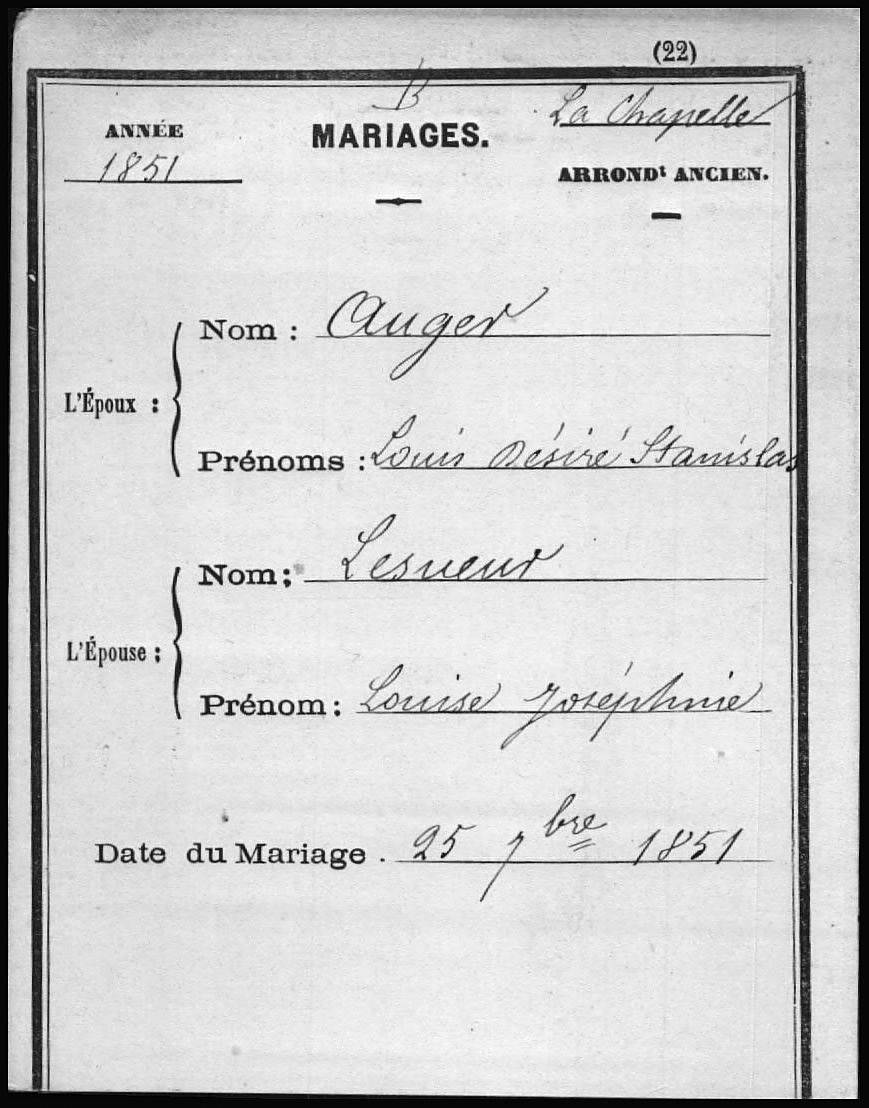 (22)
B
ANNÉE
1851
MARIAGES.
La Chapelle
ARRONDt ANCIEN.
Nom : Auger
L'Époux :
Prénoms : Louis Désiré Stanislas
Nom : Lesueur
L'Épouse :
Prénom : Louise Joséphine
Date du Mariage . 25 7bre 1851